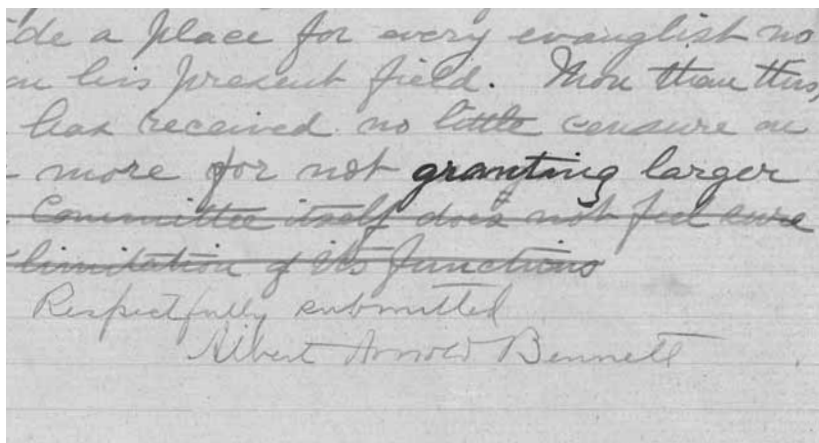 ide a place for every evanglist no
on his present field. More than this,
has received no little censure on
more for not granting larger
Committee itself does not feel sure
limitation of its functions
Respectfully submitted
Albert Arnold Bennett